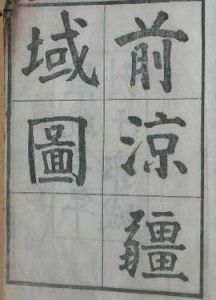 前涼疆
域圖